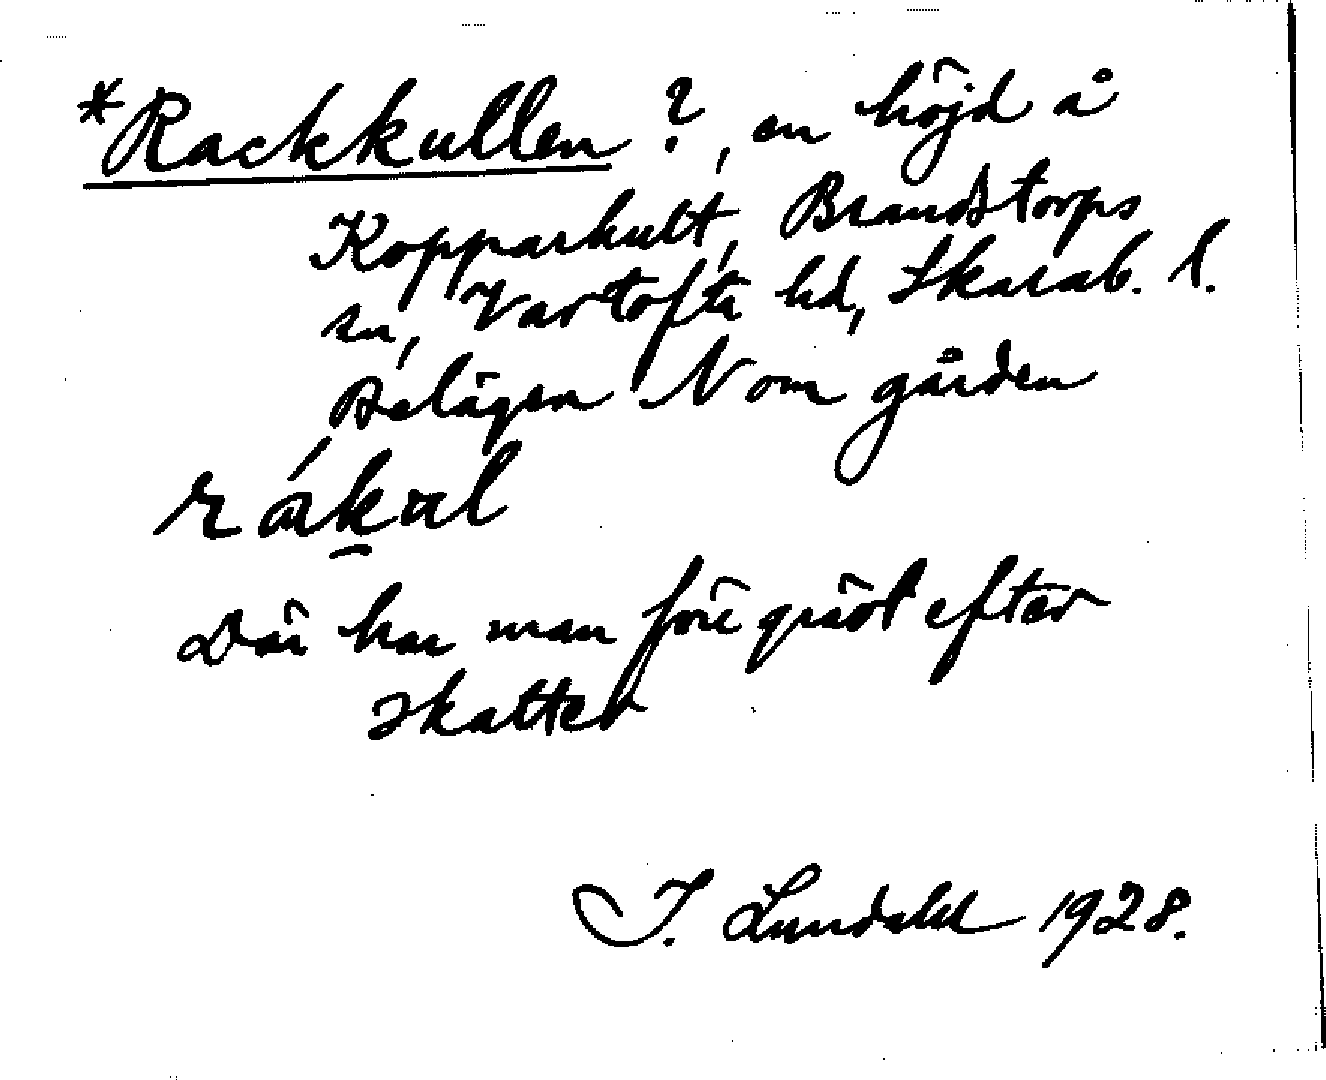 *Rackkullen ?, en höjd å
Kopparhult, Brandstorps
sn, Vartofta hd, Skarab. l.
Belägen N om gården
råkul
Där har man förr grävt efter
skatter
I. Lundahl 1928.